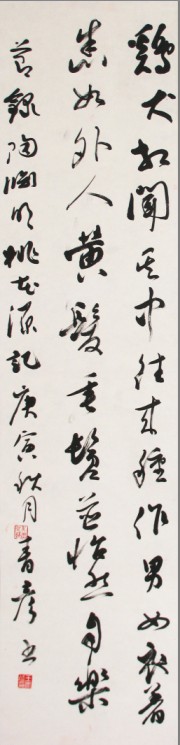 鷄犬相聞其中往來種作男女衣着
悉如外人黄髮垂髫並怡然自樂
節錄陶淵明桃花源記庚寅秋月青彦书